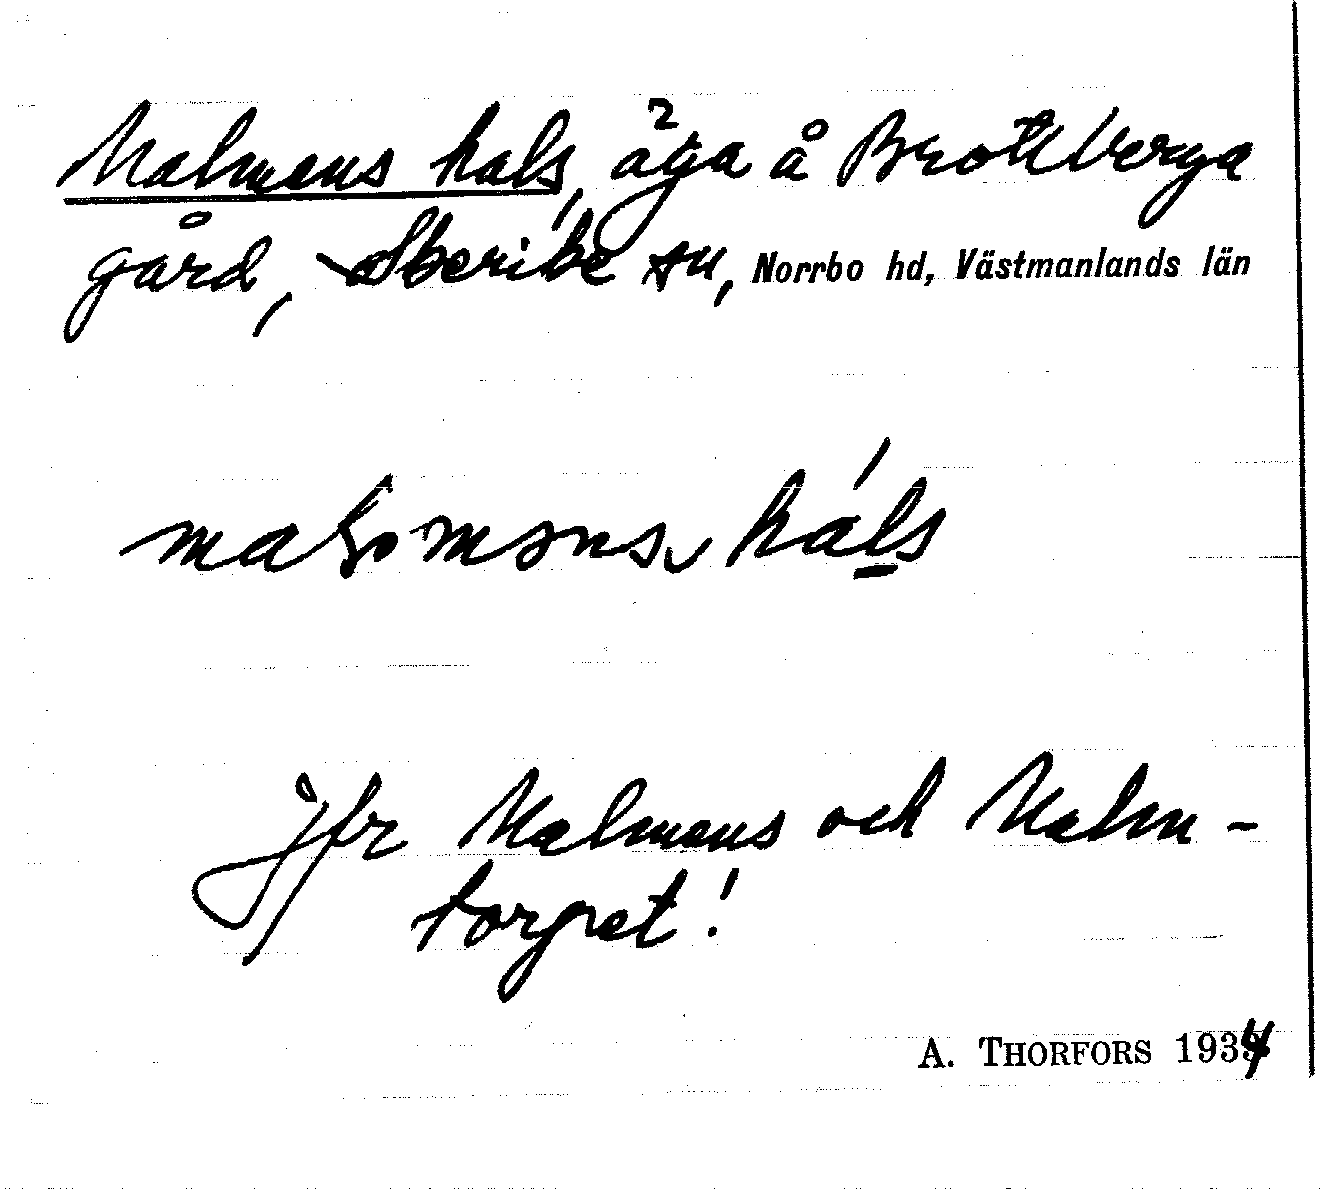 Malmens hals, äga å Brottberga
gård, Skerike sn, Norrbo hd, Västmanlands län
hals
Jfr Malmens och Malm-
torget!
A. THORFORS 1934